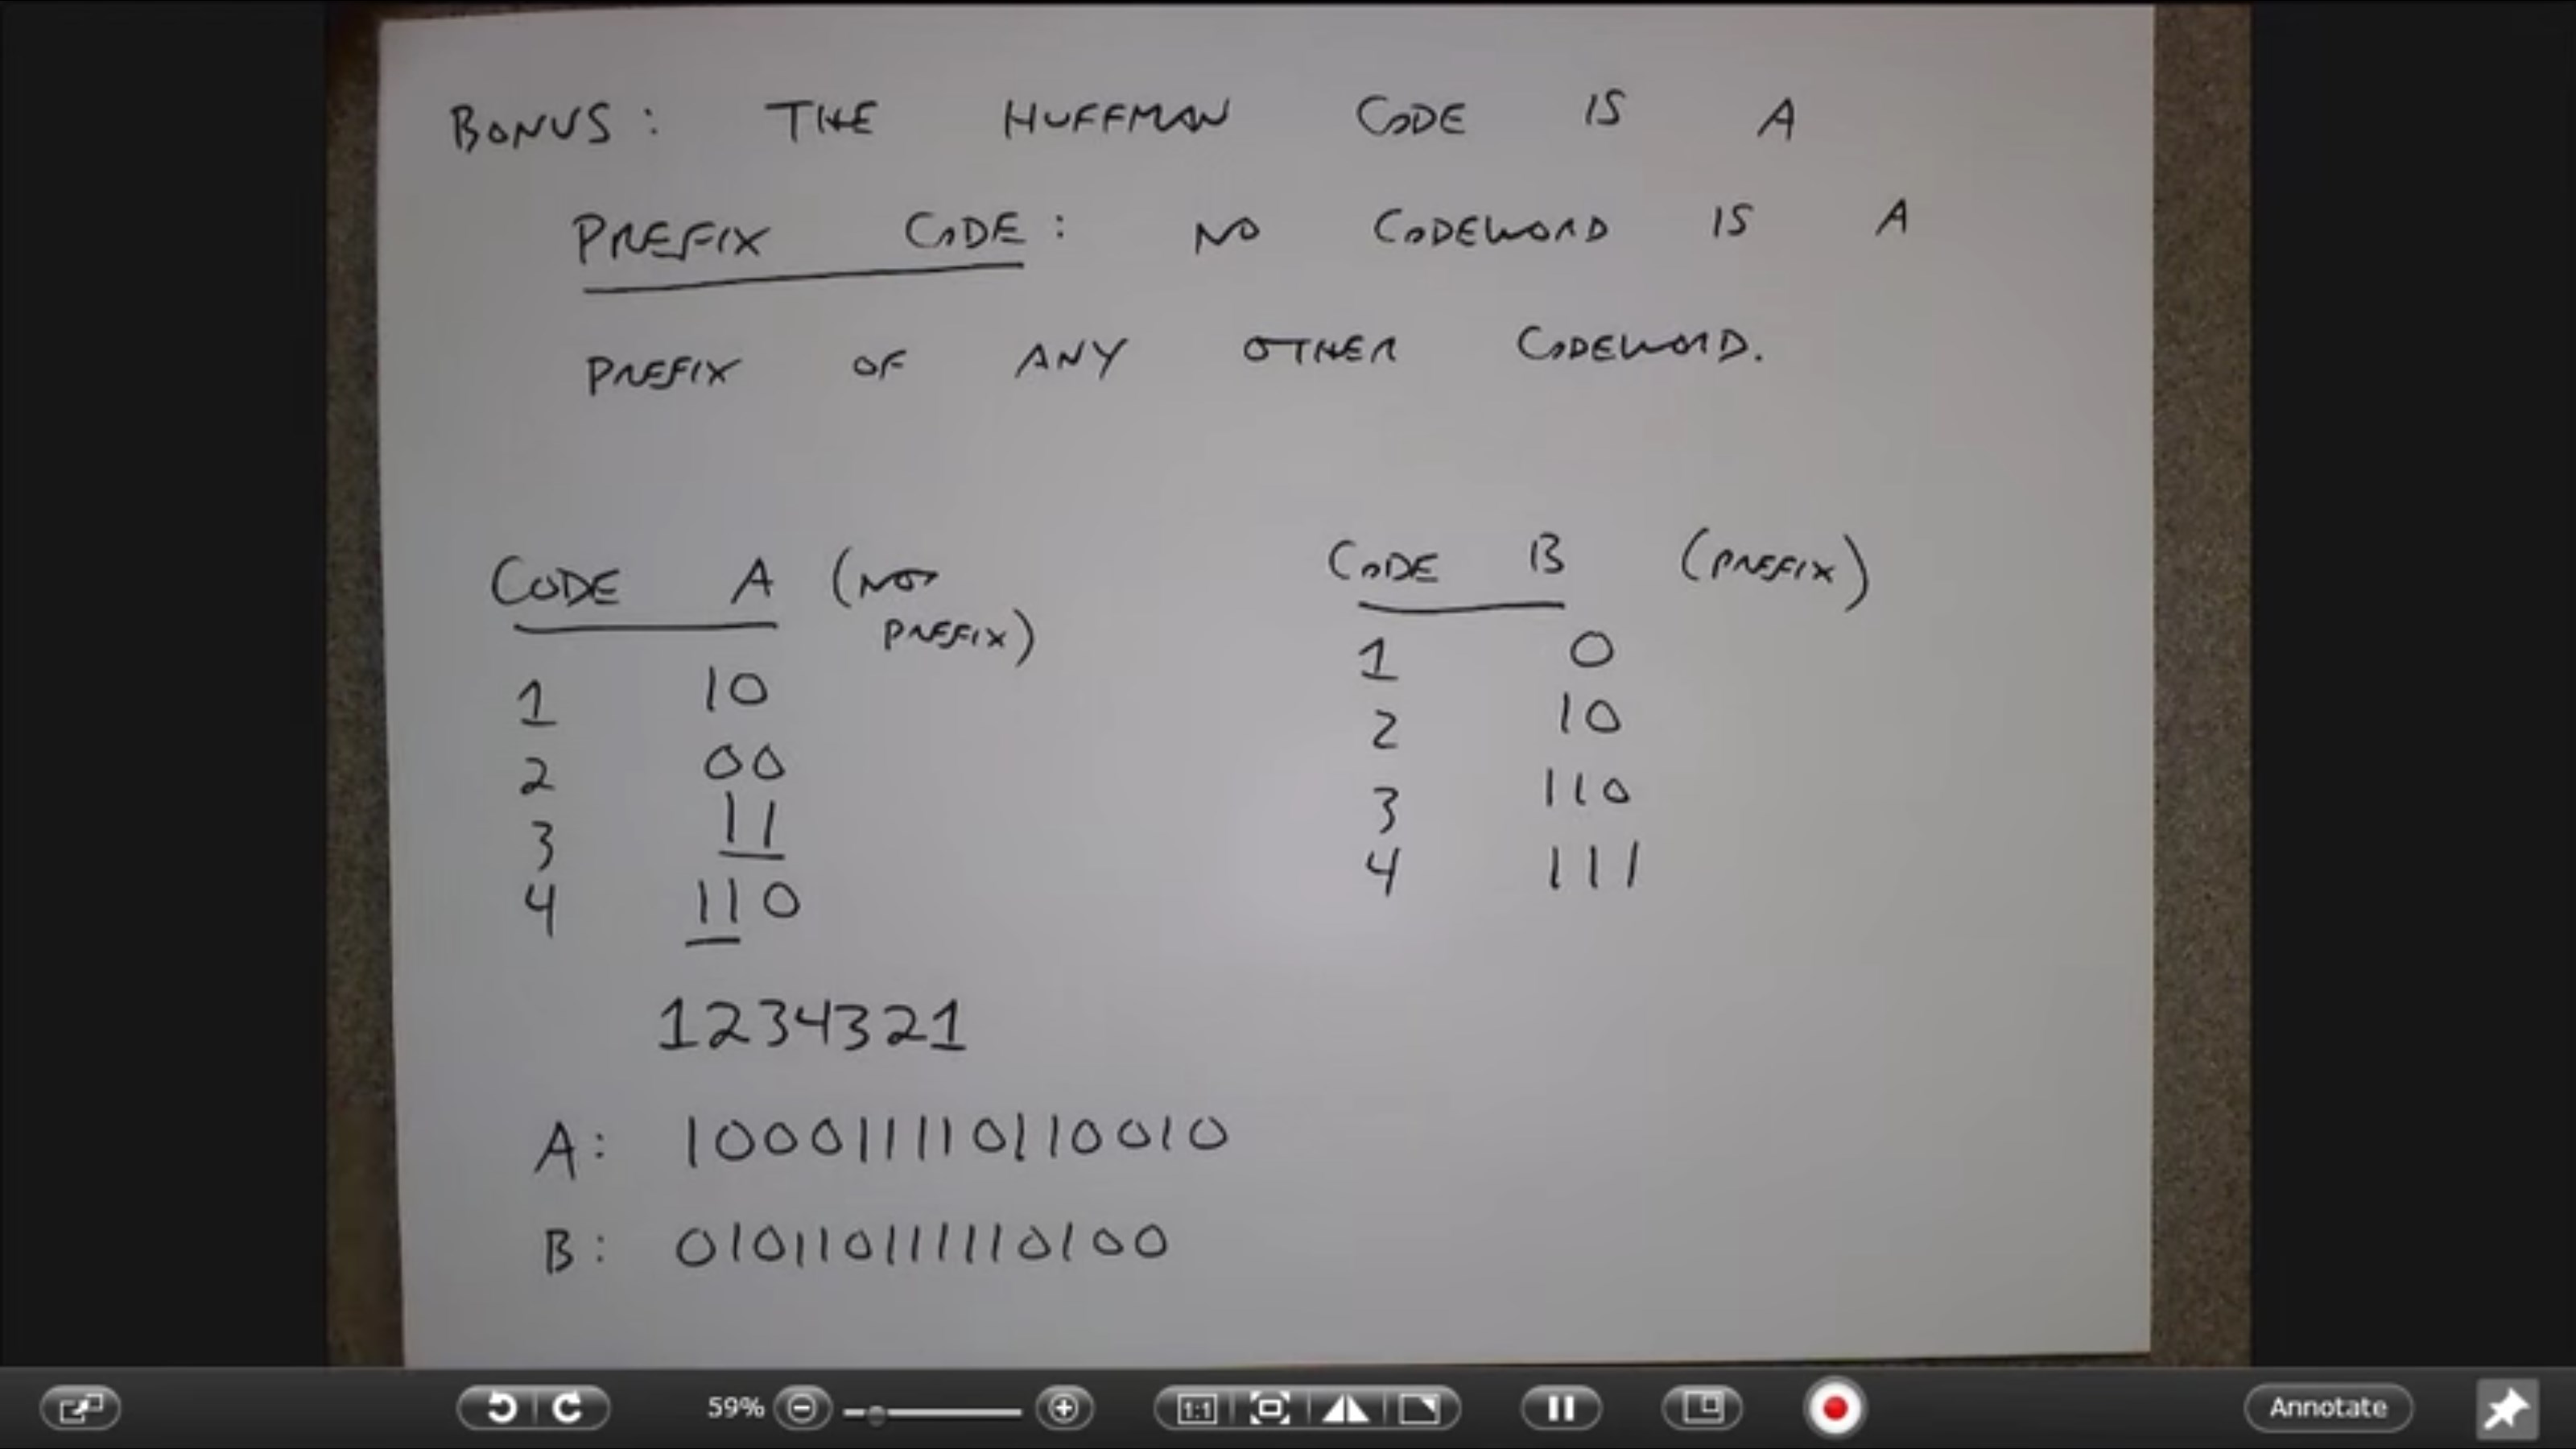 BONUS: THE HUFFMAN CODE IS A
PREFIX CODE: NO CODEWORD IS A
PREFIX OF ANY OTHER CODEWORD.
CODE A (NOT
PREFIX)
1 10
2 00
3 11
4 110
CODE B (PREFIX)
1 0
2 10
3 110
4 111
1234321
A: 100011110110010
B: 010110111110100
59%
1:1
Annotate